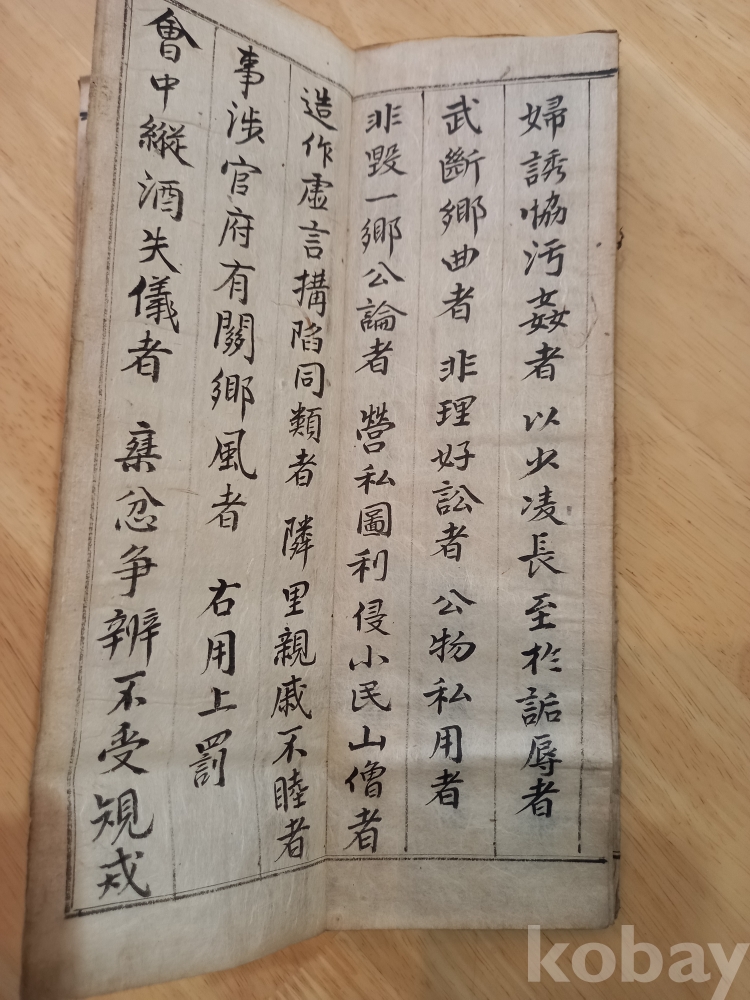 婦誘恊汚姦者 以少凌長至於詬辱者
武斷鄕曲者 非理好訟者 公物私用者
非毁一鄕公論者 營私圖利侵小民山僧者
造作虛言搆陷同類者 隣里親戚不睦者
事涉官府有關鄕風者 右用上罰
會中縱酒失儀者 棄忿爭辨不受規戒
kobay